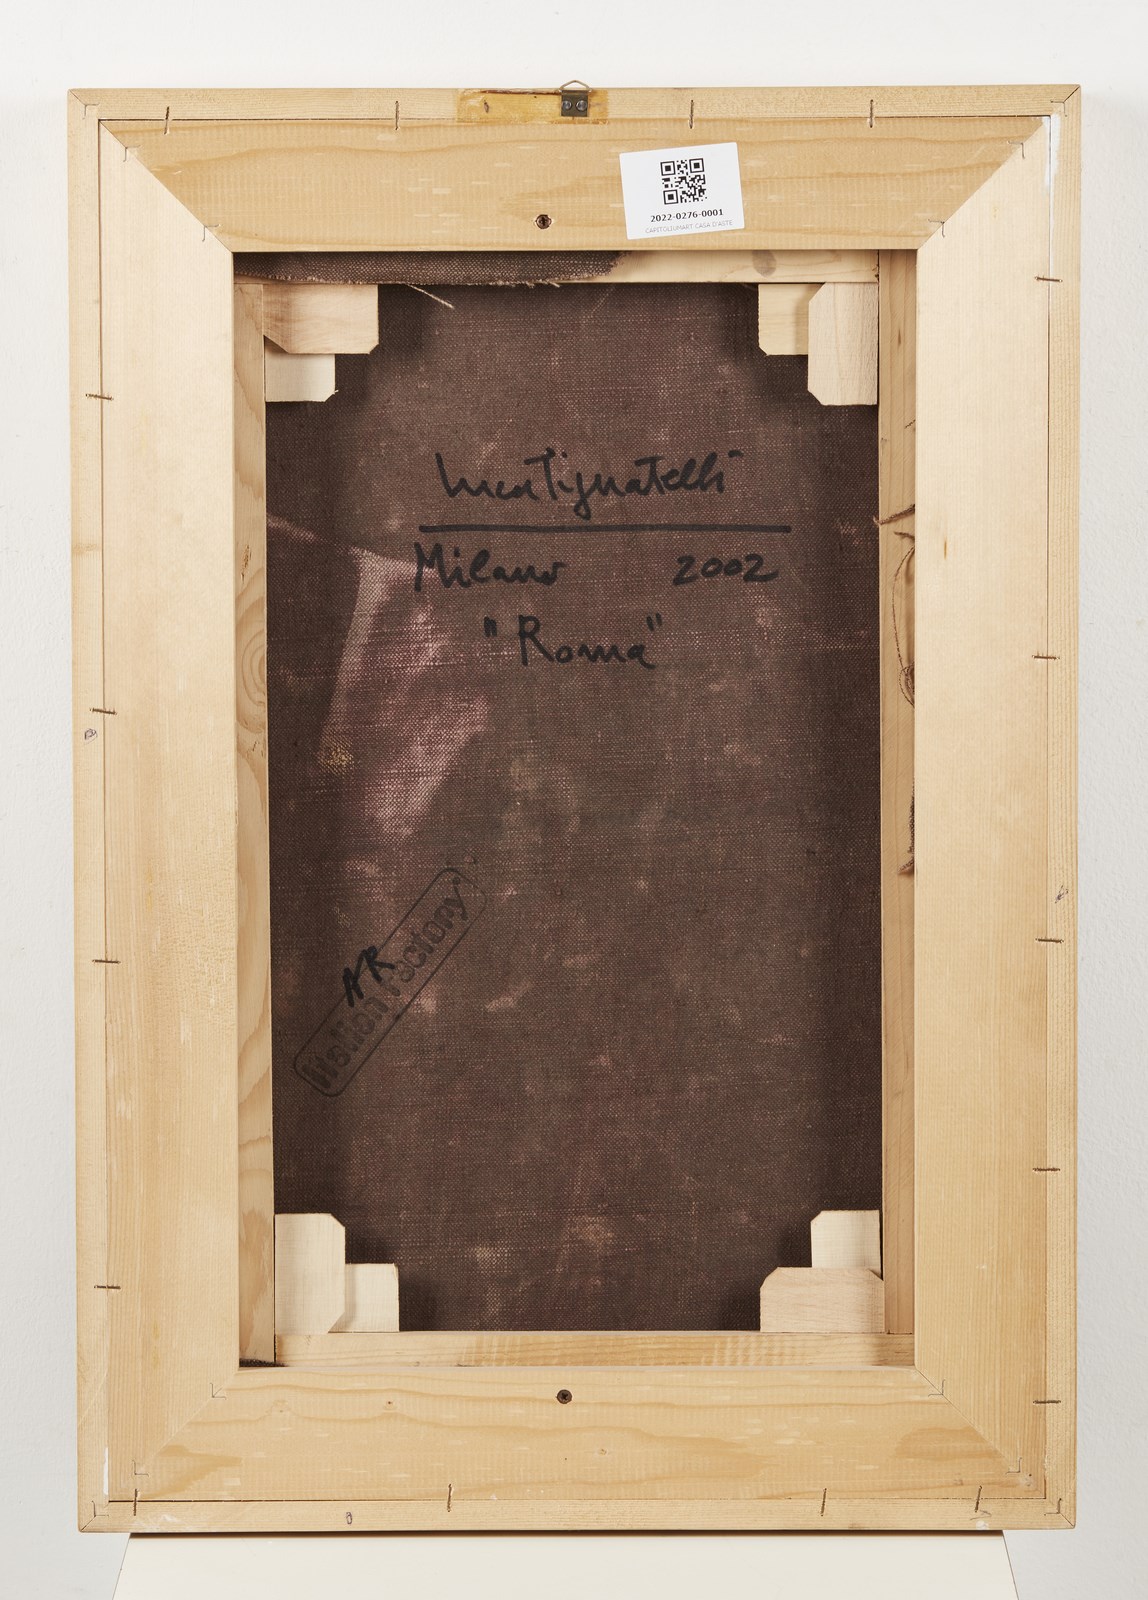 2022-0276-0001
CAPITOLIUMART CASA D'ASTE
Luca Pignatelli
Milano 2002
"Roma"
AR
Factory